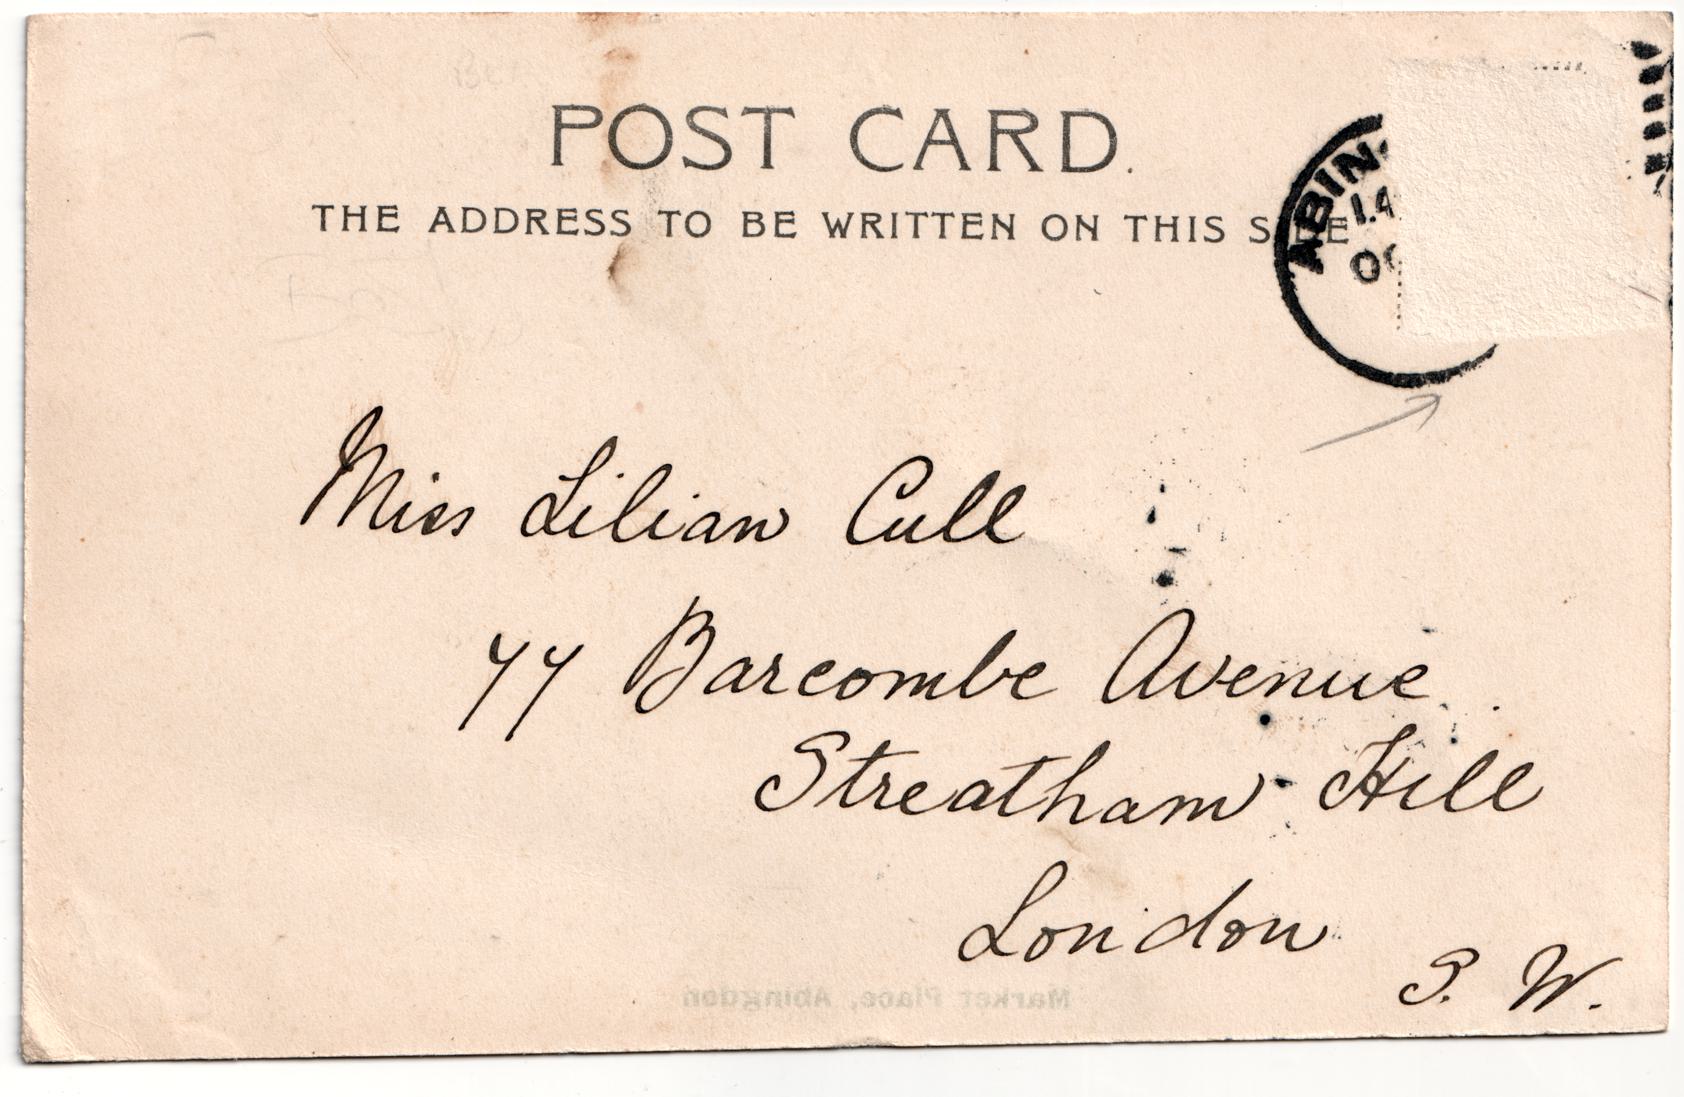 POST CARD.
THE ADDRESS TO BE WRITTEN ON THIS SIDE
ABIN
1.4
OC
Miss Lilian Cull
77 Barcombe Avenue
Streatham Hill
London
S. W.
Market Place, Abingdon